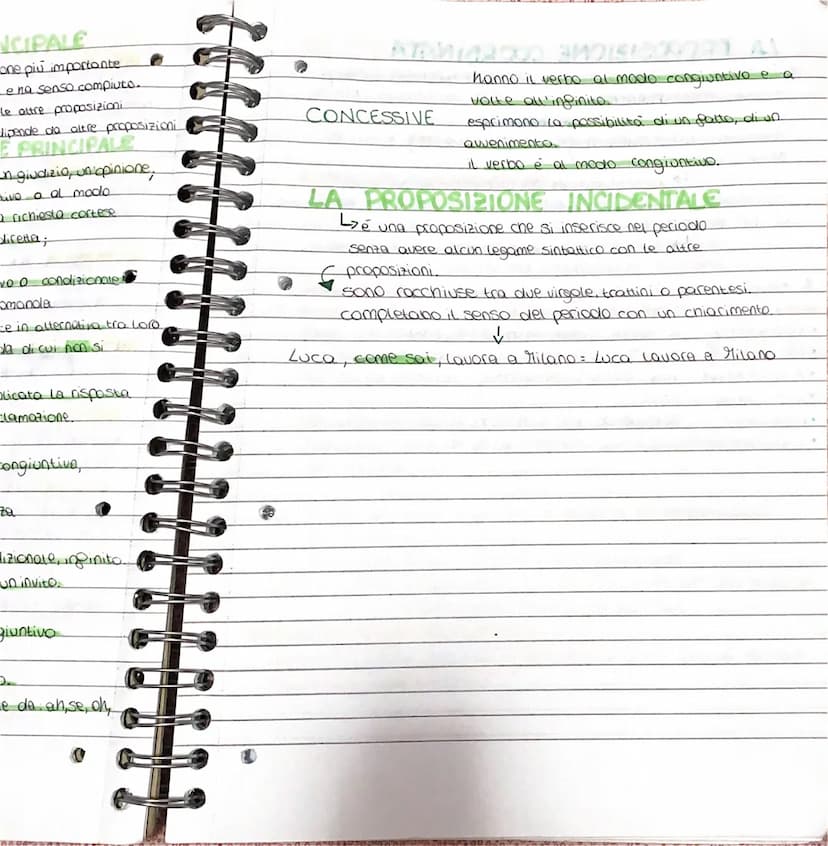 NCIPALE
one più importante
e ha senso compiuto.
le altre proposizioni
dipende da altre proposizioni
E PRINCIPALE
un giudizio, un'opinione,
ivo o al modo
richiesta cortese
diretta;
vo o condizionale
omanda
ce in alternativa tra loro
da di cui non si
plicata la risposta
clamazione.
congiuntivo,
za
dizionale, infinito.
un invito.
giuntivo
o.
e da: ah, se, oh,
hanno il verbo al modo congiuntivo e a
volte all'infinito.
CONCESSIVE esprimono la possibilità di un fatto, di un
avvenimento.
il verbo è al modo congiuntivo.
LA PROPOSIZIONE INCIDENTALE
↳ é una proposizione che si inserisce nel periodo
senza avere alcun legame sintattico con le altre
proposizioni.
sono racchiuse tra due virgole, trattini o parentesi.
completano il senso del periodo con un chiarimento.
↓
Luca, come sai, lavora a Milano = Luca lavora a Milano